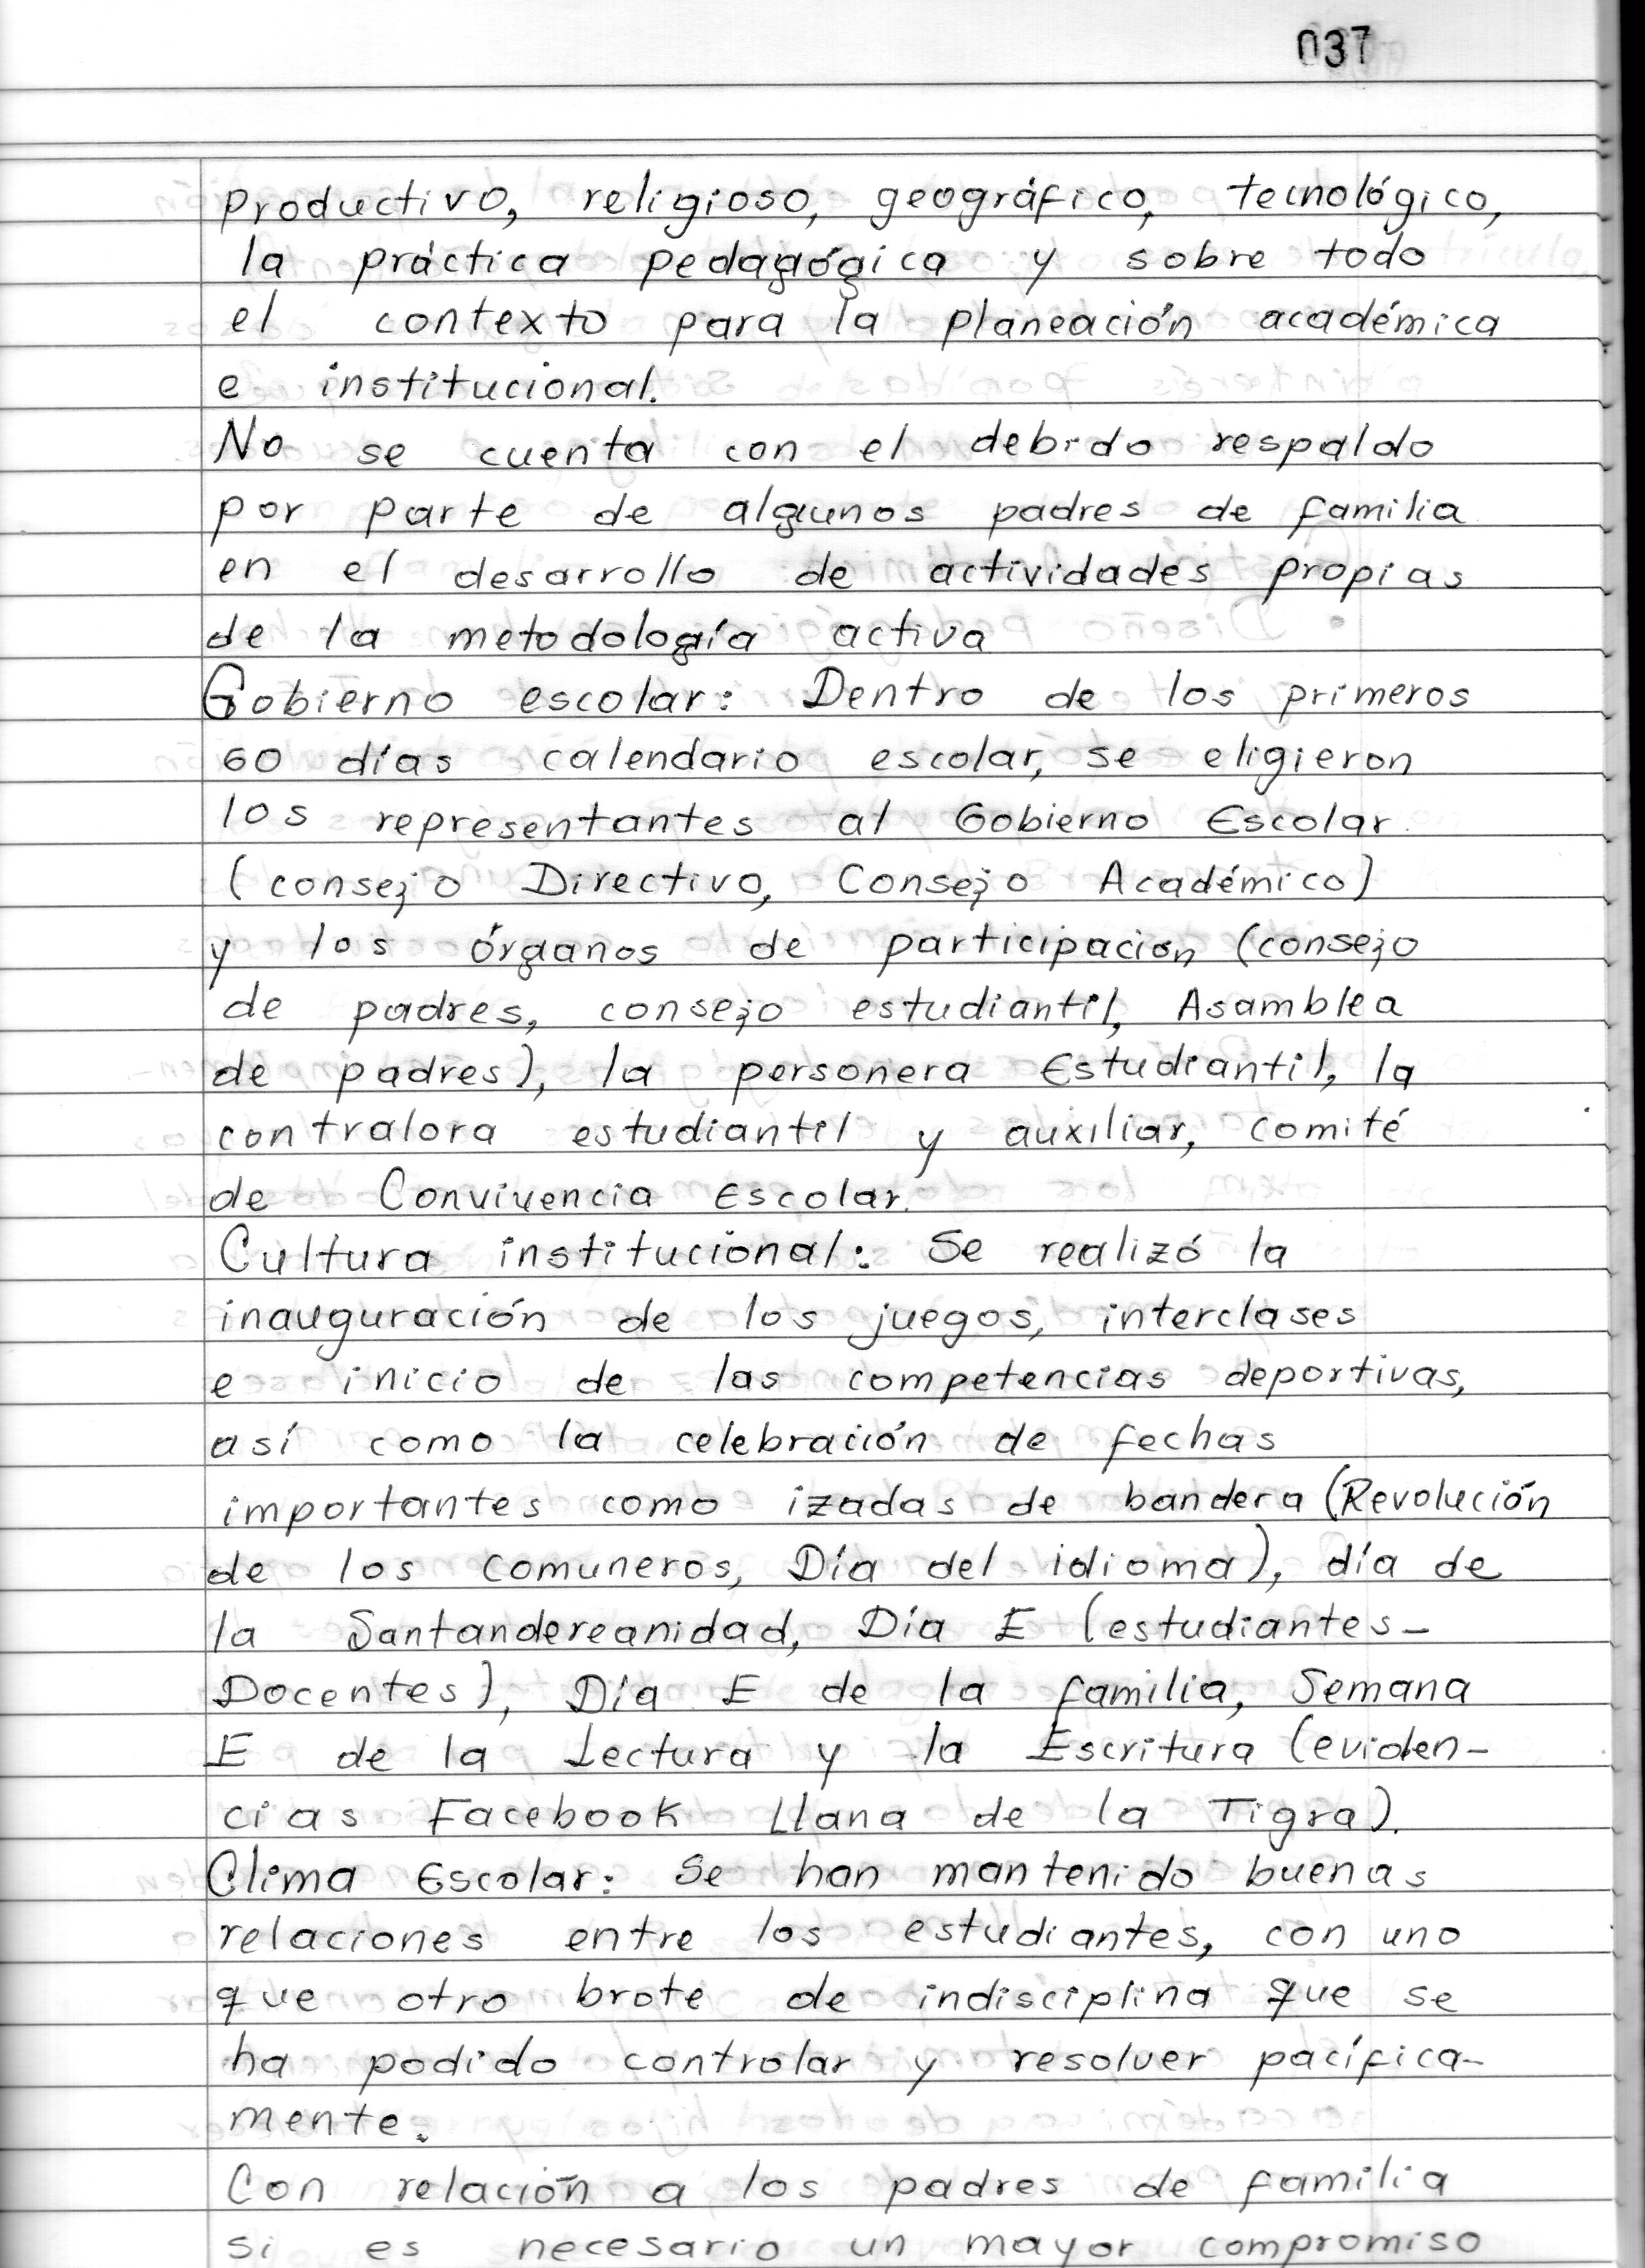 037
productivo, religioso, geográfico, tecnológico,
la práctica pedagógica y sobre todo
el contexto para la planeación académica
e institucional.
No se cuenta con el debido respaldo
por parte de algunos padres de familia
en el desarrollo de actividades propias
de la metodología activa
Gobierno escolar: Dentro de los primeros
60 días calendario escolar, se eligieron
los representantes al Gobierno Escolar
(consejo Directivo, Consejo Académico)
y los órganos de participación (consejo
de padres, consejo estudiantil, Asamblea
de padres), la personera Estudiantil, la
contralora estudiantil y auxiliar, comité
de Convivencia Escolar.
Cultura institucional: Se realizó la
inauguración de los juegos, interclases
e inicio de las competencias deportivas,
así como la celebración de fechas
importantes como izadas de bandera (Revolución
de los comuneros, Día del idioma), día de
la Santandereanidad, Día E (estudiantes-
Docentes), Día E de la familia, Semana
E de la Lectura y la Escritura (eviden-
cias Facebook Llana de la Tigra).
Clima Escolar: Se han mantenido buenas
relaciones entre los estudiantes, con uno
que otro brote de indisciplina que se
ha podido controlar y resolver pacífica-
mente.
Con relación a los padres de familia
si es necesario un mayor compromiso